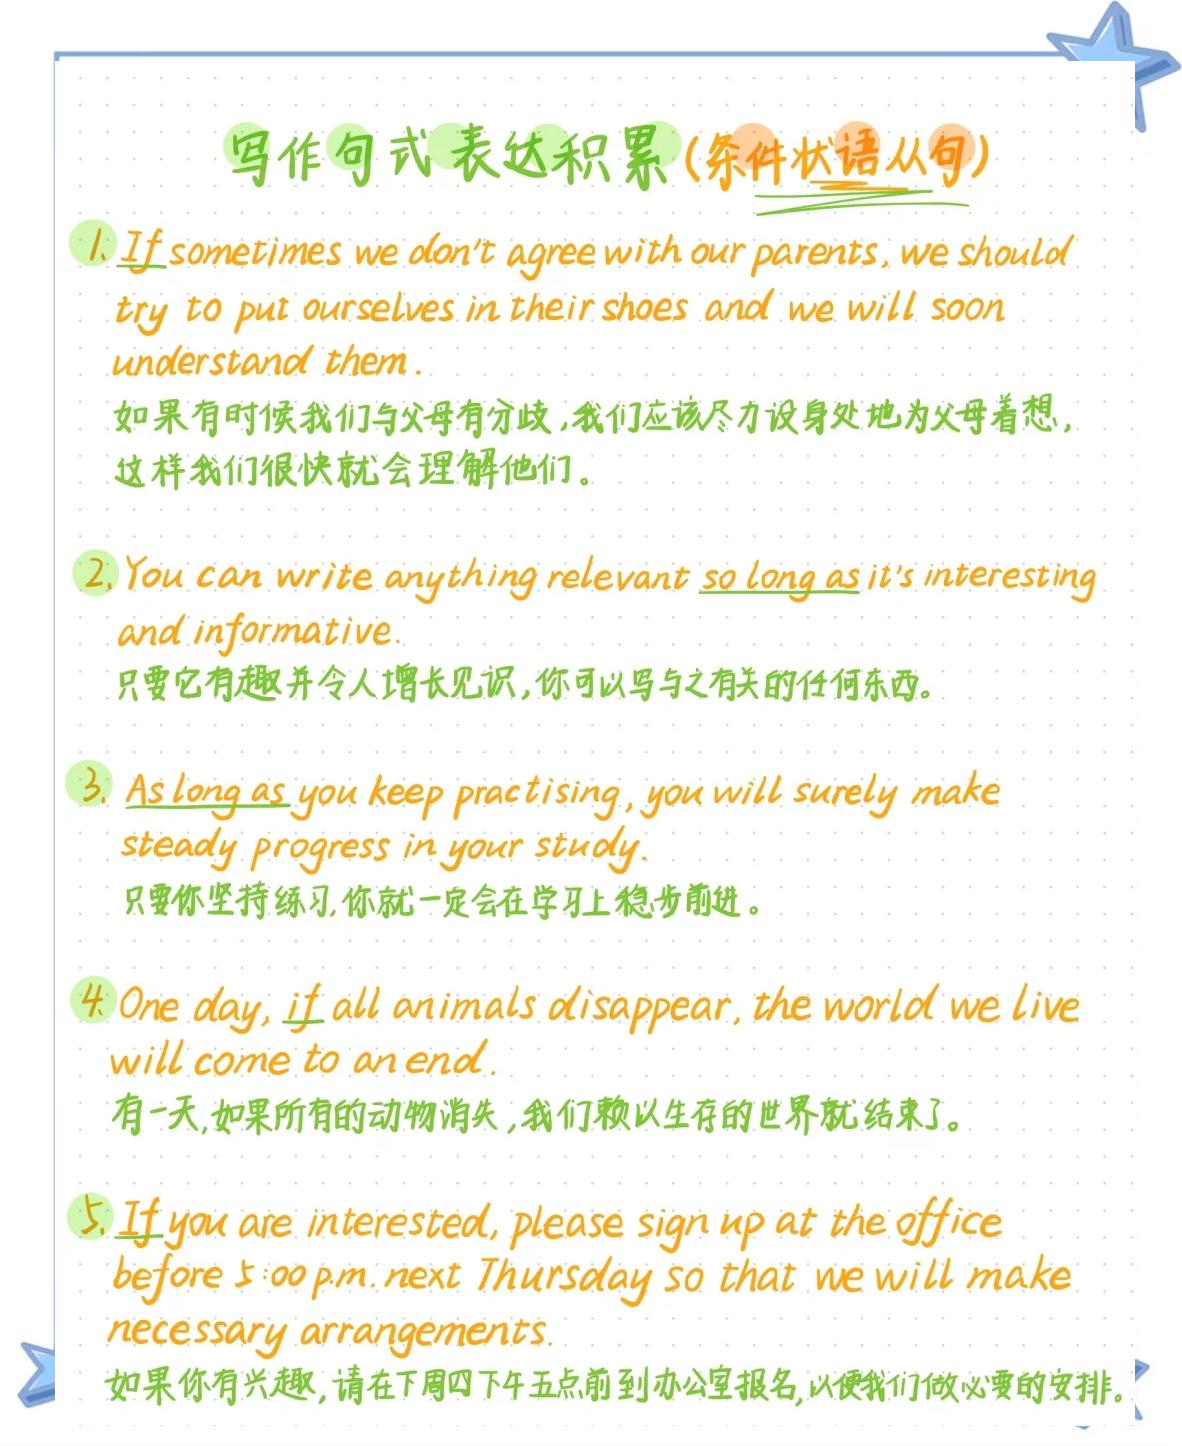 写作句式表达积累(条件状语从句)
1. If sometimes we don't agree with our parents, we should
try to put ourselves in their shoes and we will soon
understand them.
如果有时候我们与父母有分歧,我们应该尽力设身处地为父母着想,
这样我们很快就会理解他们。
2. You can write anything relevant so long as it's interesting
and informative.
只要它有趣并令人增长见识,你可以写与之有关的任何东西。
3. As long as you keep practising, you will surely make
steady progress in your study.
只要你坚持练习,你就一定会在学习上稳步前进。
4. One day, if all animals disappear, the world we live
will come to an end.
有一天,如果所有的动物消失,我们赖以生存的世界就结束了。
5. If you are interested, please sign up at the office
before 5:00 p.m. next Thursday so that we will make
necessary arrangements.
如果你有兴趣,请在下周四下午五点前到办公室报名,以便我们做必要的安排。